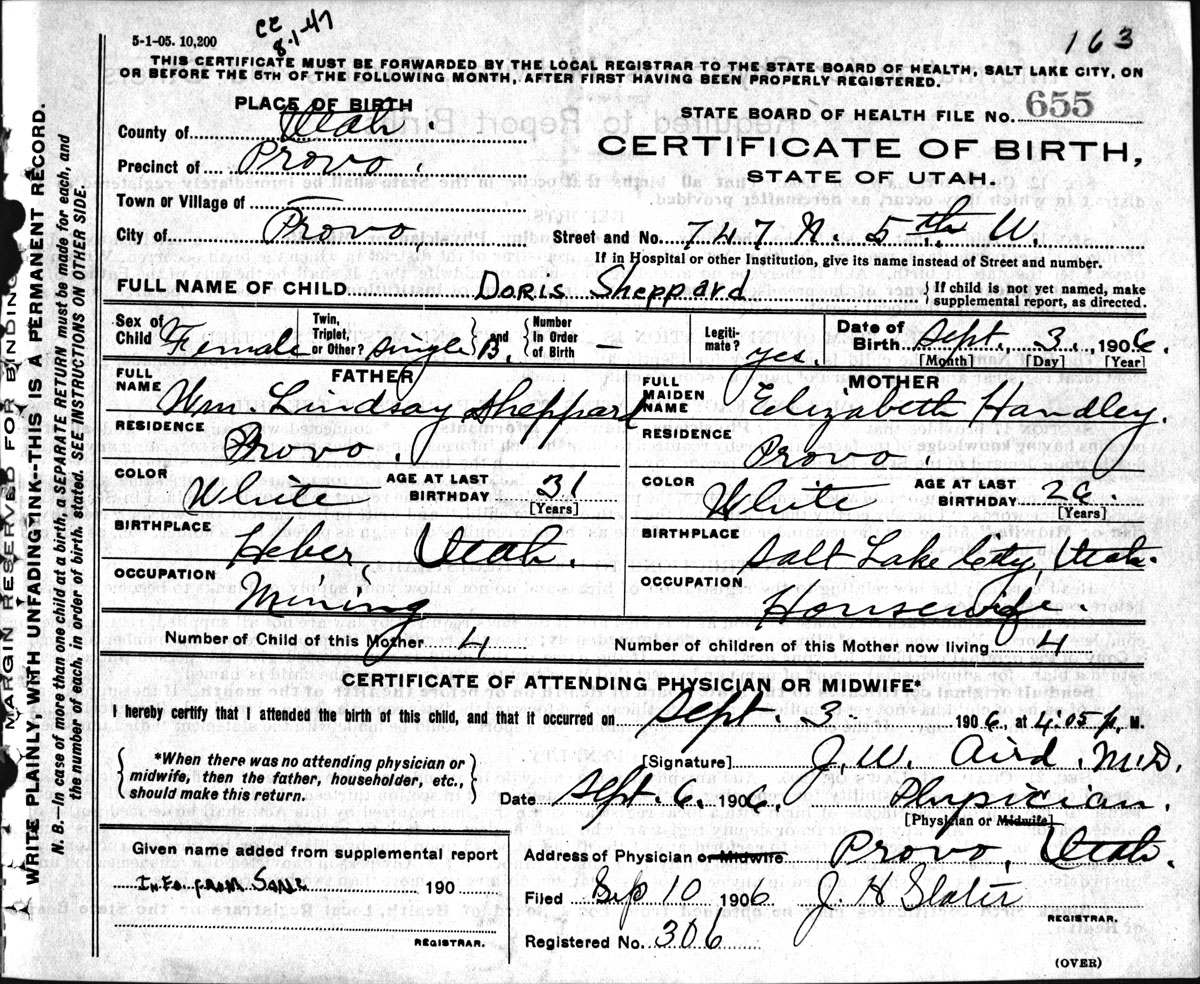 5-1-05. 10,200
CE
8-1-47
163
THIS CERTIFICATE MUST BE FORWARDED BY THE LOCAL REGISTRAR TO THE STATE BOARD OF HEALTH, SALT LAKE CITY, ON
OR BEFORE THE 5TH OF THE FOLLOWING MONTH, AFTER FIRST HAVING BEEN PROPERLY REGISTERED.
PLACE OF BIRTH
County of Utah.
Precinct of Provo.
Town or Village of —
City of Provo
STATE BOARD OF HEALTH FILE No. 655
CERTIFICATE OF BIRTH,
STATE OF UTAH.
Street and No. 747 N. 5th W.
If in Hospital or other Institution, give its name instead of Street and number.
FULL NAME OF CHILD Doris Sheppard { If child is not yet named, make
supplemental report, as directed.
Sex of Child Female
Twin, Triplet, or Other? single } and { Number In Order of Birth
Legiti- mate? yes.
Date of Birth Sept. 3. 1906.
[Month] [Day] [Year]
FATHER
FULL NAME Wm Lindsay Sheppard
RESIDENCE Provo.
COLOR White AGE AT LAST BIRTHDAY 31 [Years]
BIRTHPLACE Heber, Utah.
OCCUPATION Mining
MOTHER
FULL MAIDEN NAME Elizabeth Handley.
RESIDENCE Provo.
COLOR White AGE AT LAST BIRTHDAY 26. [Years]
BIRTHPLACE Salt Lake City, Utah.
OCCUPATION Housewife.
Number of Child of this Mother 4 Number of children of this Mother now living 4
CERTIFICATE OF ATTENDING PHYSICIAN OR MIDWIFE*
I hereby certify that I attended the birth of this child, and that it occurred on Sept. 3- 1906, at 4:05 p. M.
*When there was no attending physician or
midwife, then the father, householder, etc.,
should make this return.
[Signature] J. W. Aird. M.D.
Date Sept. 6. 1906. Physician.
[Physician or Midwife]
Given name added from supplemental report
Info from Same 190
REGISTRAR.
Address of Physician or Midwife Provo, Utah.
Filed Sep 10 1906 J. H Slater
REGISTRAR.
Registered No. 306
(OVER)
MARGIN RESERVED FOR BINDING
WRITE PLAINLY, WITH UNFADING INK--THIS IS A PERMANENT RECORD.
N. B.—In case of more than one child at a birth, a SEPARATE RETURN must be made for each, and
the number of each, in order of birth, stated. SEE INSTRUCTIONS ON OTHER SIDE.